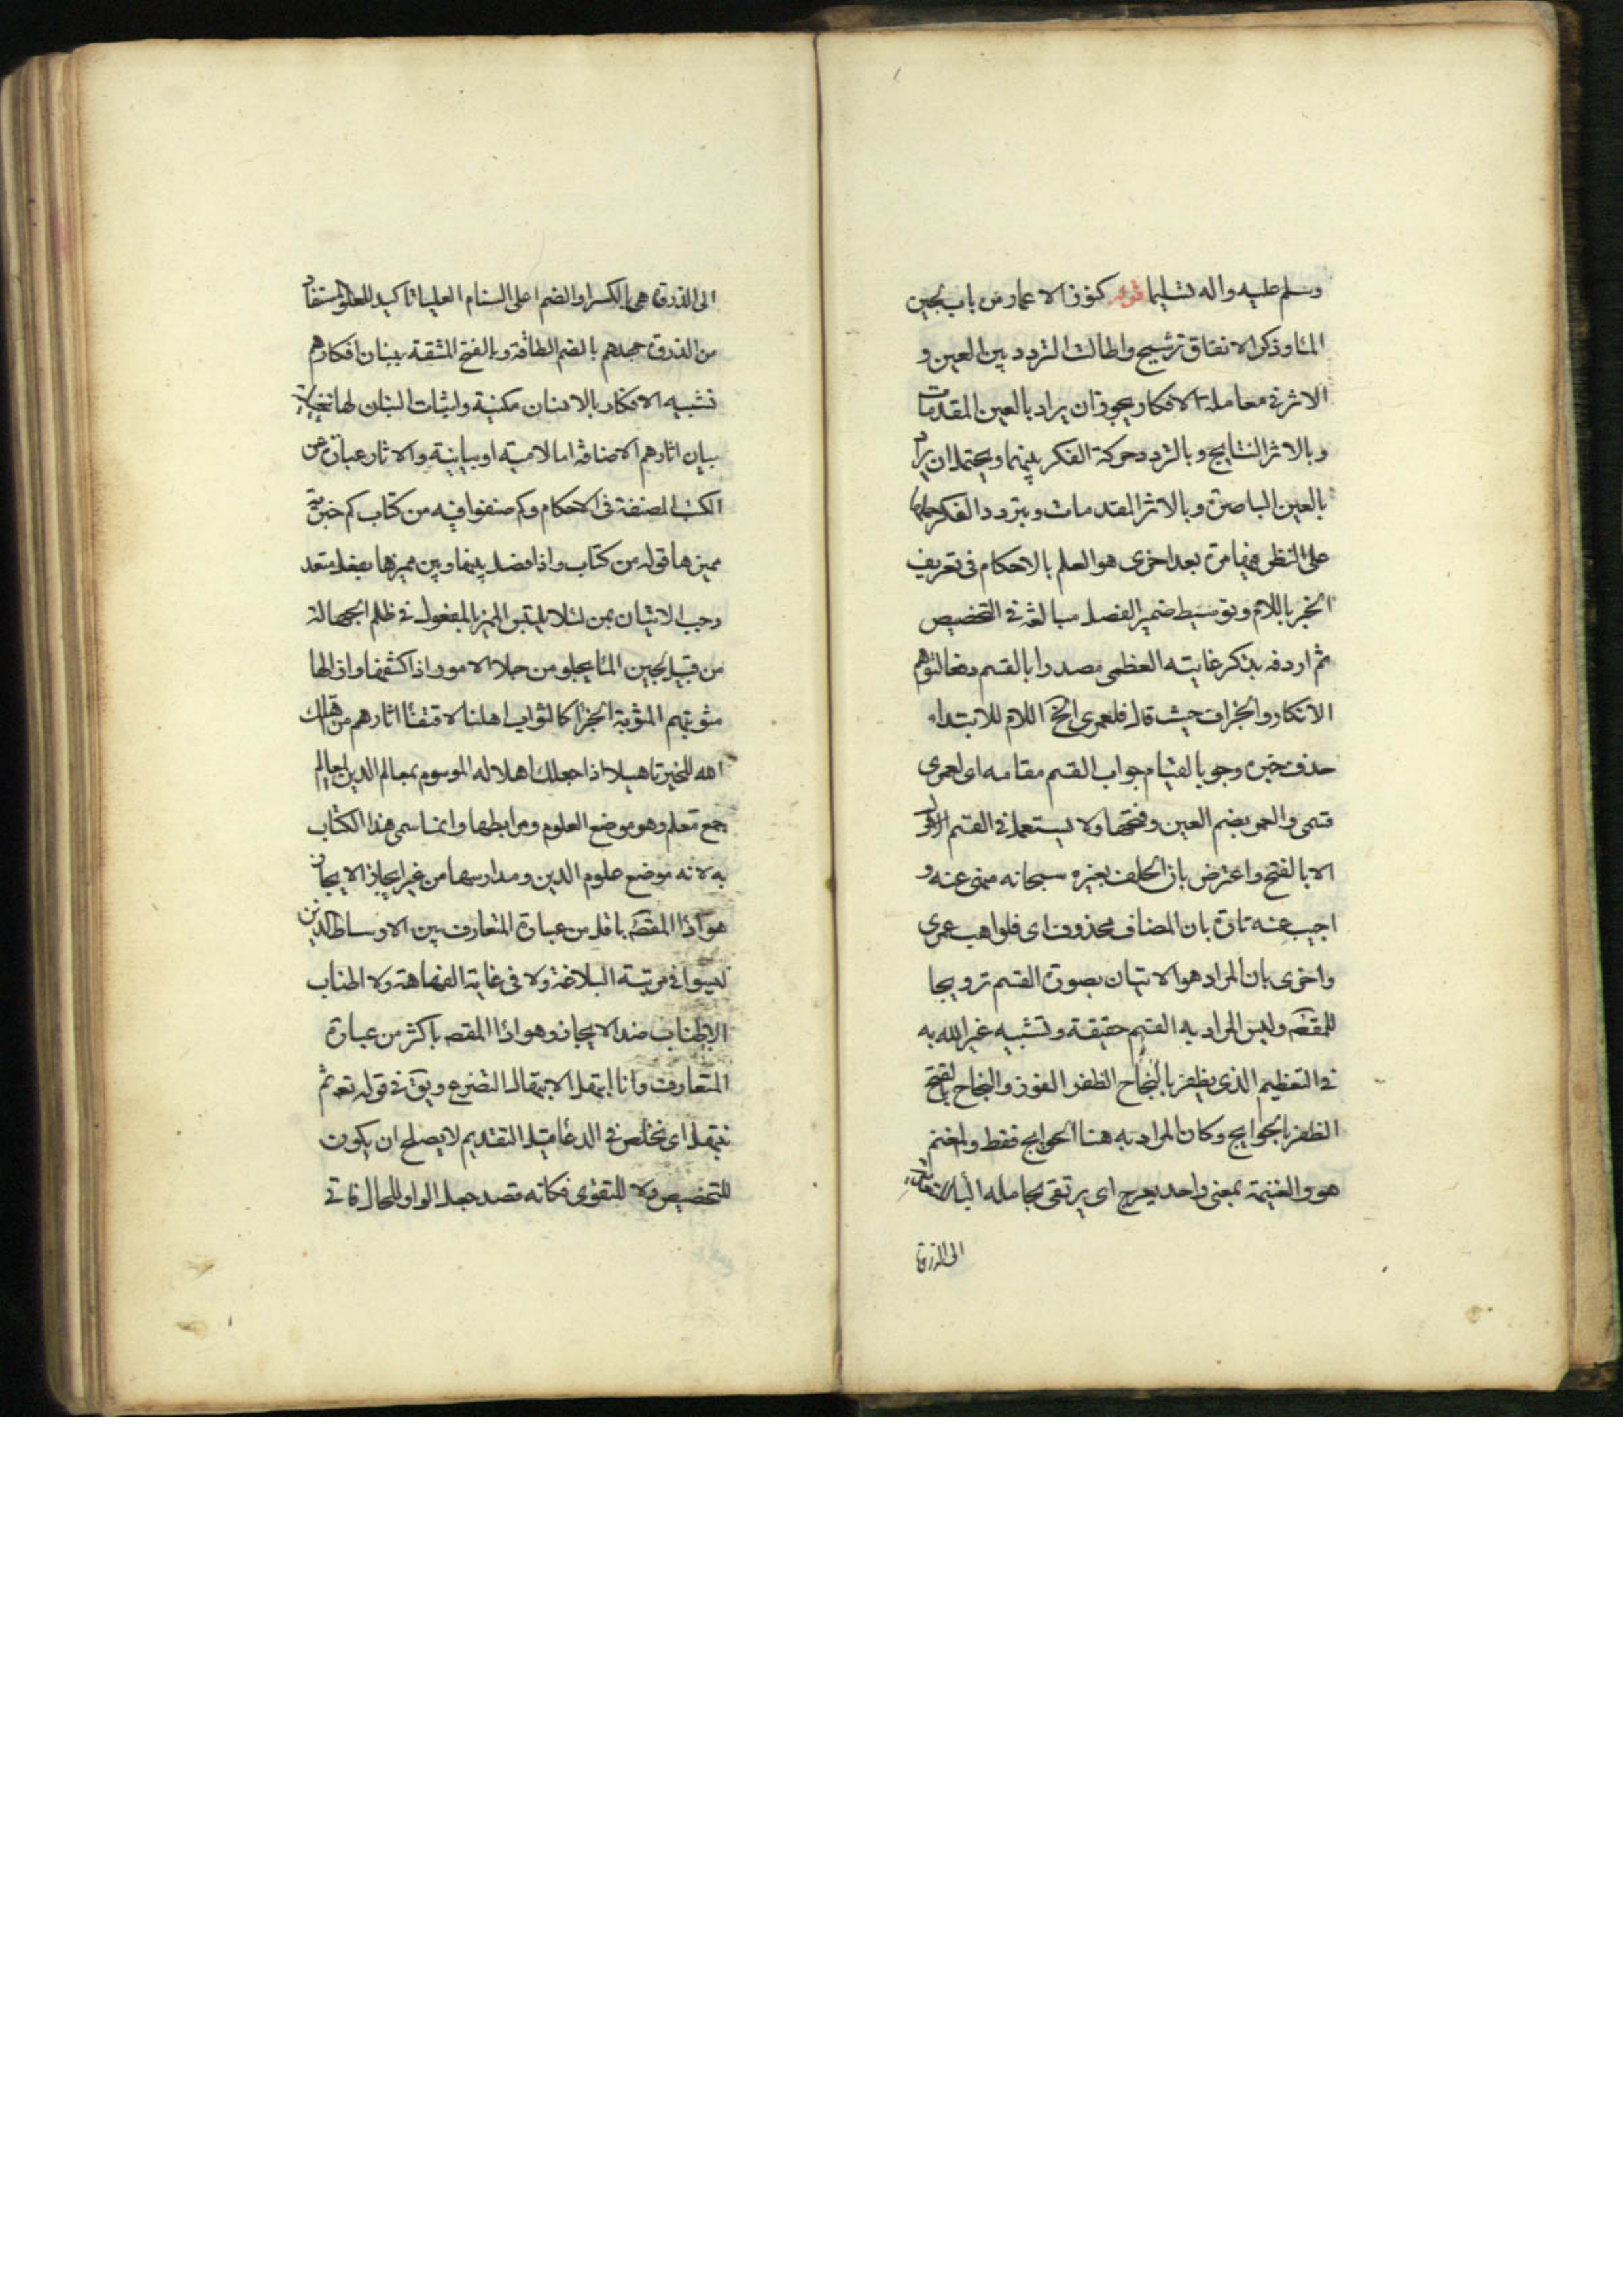 وسلم عليه واله تسليما قوله كنوز الاعمار من باب لجين
الماء وذكر الانفاق ترشيح واطالت التردد بين العين و
الاثر في معاملة الافكار يجوز ان يراد بالعين المقدمات
وبالاثر النتايج وبالتردد حركة الفكر بينهما ويحتمل ان يراد
بالعين الباصرة وبالاثر المقدمات وبتردد الفكر حملها
على النظر فيها مرة بعد اخرى هو العلم بالاحكام في تعريف
الخبر باللام وتوسيط ضمير الفصل مبالغة في التخصيص
ثم اردفه بذكر غايته العظمى مصدرا بالقسم دفعا لتوهم
الانكار والجزاف حيث قال فلعمرى الخ اللام للابتداء
حذف خبره وجوبا لقيام جواب القسم مقامه اى لعمرى
قسمى والعمر بضم العين وفتحها ولا يستعمل في القسم
الا بالفتح واعترض بان الحلف بغيره سبحانه منهى عنه و
اجيب عنه تارة بان المضاف محذوف اى فلواهب عمرى
واخرى بان المراد هو الاتيان بصورة القسم ترويجا
للمقصد وليس المراد به القسم حقيقة وتشبيه غير الله به
في التعظيم الذى يظفر بالنجاح الظفر الفوز والنجاح بالفتح
الظفر بالحوايج وكان المراد به هنا الحوايج فقط والمغنم
هو والغنيمة بمعنى واحد يعرج اى يرتقى بحامله الباء للتعدية
الى الذروة
الى الذروة هى بالكسر والضم اعلى السنام العليا تاكيد للعلو المستفاد
من الذروة جهدهم بالضم الطاقة وبالفتح المشقة ببنان افكارهم
تشبيه الافكار بالانسان مكنية واثبات البنان لها تخييلية
بيان اثارهم الاضافة اما لامية او بيانية والاثار عبارة عن
الكتب المصنفة فى الاحكام وكم صنفوا فيه من كتاب كم خبرية
مميزها قوله من كتاب واذا فصل بينها وبين مميزها بفعل متعد
وجب الاتيان بمن لئلا يلتبس المميز بالمفعول في ظلم الجهالة
من قبيل لجين الماء يجلو من جلا الامور اذا كشفها واذالها
مثوبتهم المثوبة الجزاء كالثواب اهلنا لاقتفاء اثارهم من قولك
اهله للخير تاهيلا اذا جعلك اهلا له الموسوم بمعالم الدين المعالم
جمع معلم وهو موضع العلوم ومرابطها وانما سمى هذا الكتاب
به لانه موضع علوم الدين ومدارسها من غير ايجاز الايجاز
هو اداء المقصد باقل من عبارة المتعارف بين الاوساط الذين
ليسوا في مرتبة البلاغة ولا فى غاية الفهاهة ولا اطناب
الاطناب ضد الايجاز وهو اداء المقصد باكثر من عبارة
المتعارف وانا ابتهل الابتهال التضرع ويق في قوله تعه ثم
نبتهل اى نخلص في الدعاء قيل التقديم لا يصلح ان يكون
للتخصيص ولا للتقوى فكانه قصد جعل الواو للحال فاتى